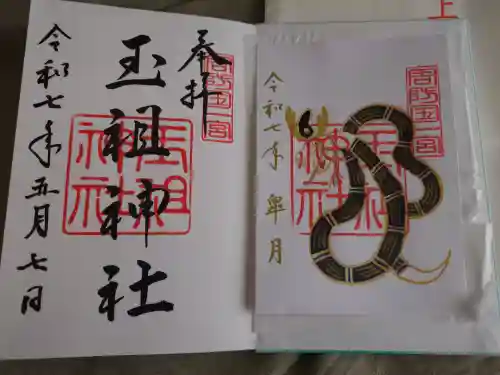 奉拝
周防国一宮
玉祖神社
玉祖神社
令和七年五月七日
上
周防国一宮
玉祖神社
令和七年 皐月